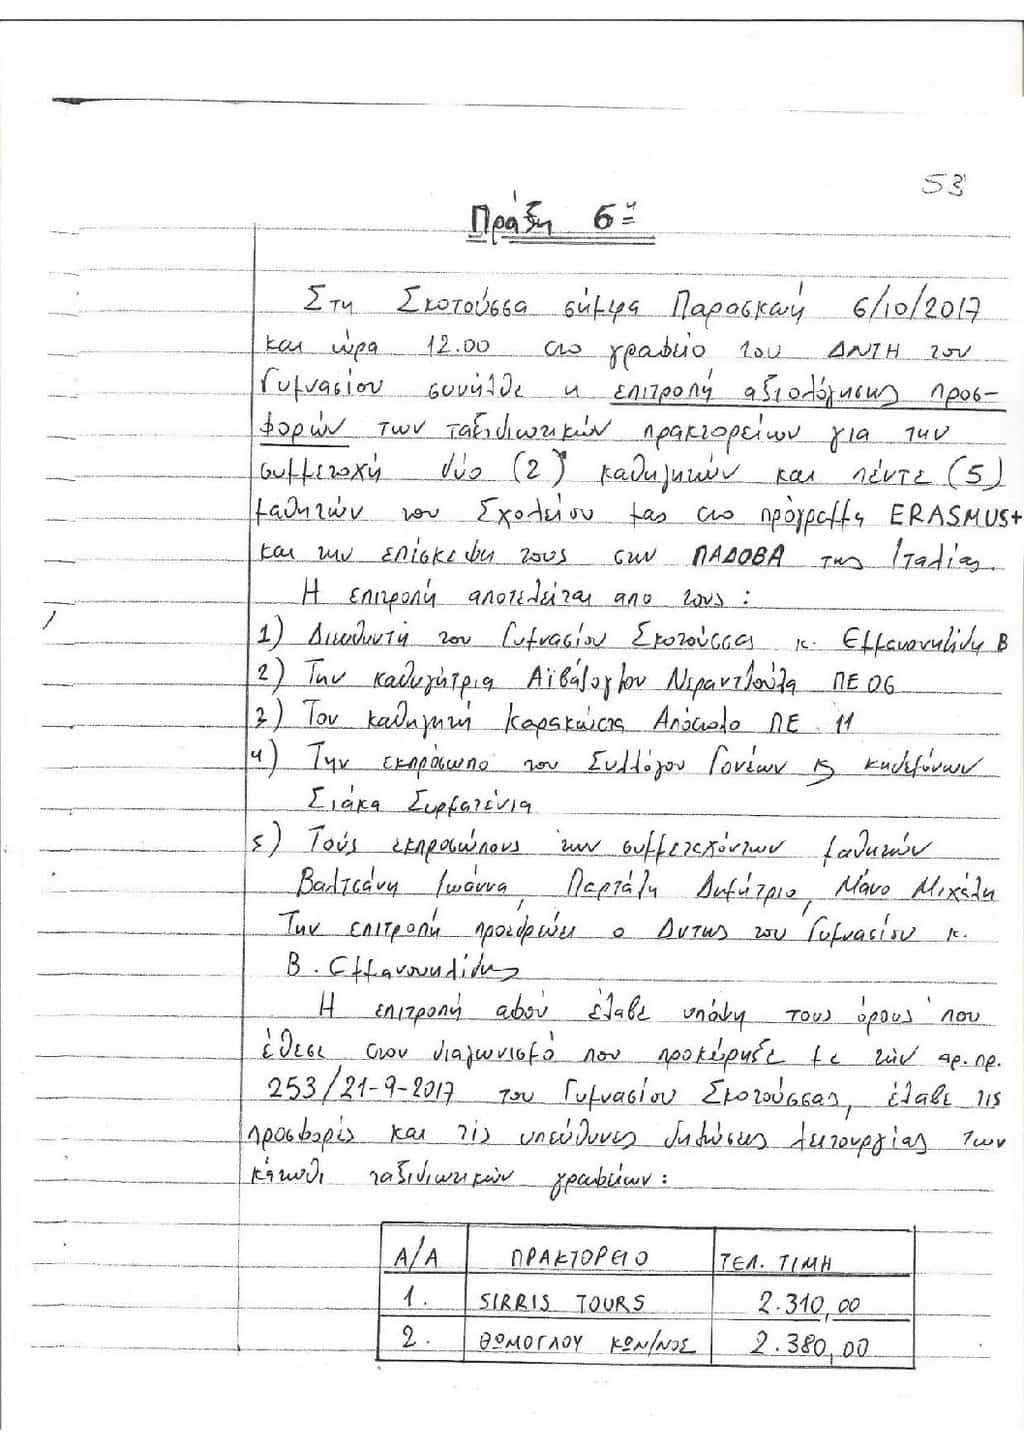 53
Πράξη 6η
Στη Σκοτούσσα σήμερα Παρασκευή 6/10/2017
και ώρα 12.00 στο γραφείο του ΔΝΤΗ του
Γυμνασίου συνήλθε η επιτροπή αξιολόγησης προσ-
φορών των ταξιδιωτικών πρακτορείων για την
συμμετοχή δύο (2) καθηγητών και πέντε (5)
μαθητών του Σχολείου μας στο πρόγραμμα ERASMUS+
και την επίσκεψη τους στην ΠΑΔΟΒΑ της Ιταλίας.
Η επιτροπή αποτελείται απο τους :
1) Διευθυντή του Γυμνασίου Σκοτούσσας κ. Εμμανουηλίδη Β
2) Την καθηγήτρια Αϊβάζογλου Νεραντζούλα ΠΕ 06
3) Τον καθηγητή Καρακώστα Απόστολο ΠΕ 11
4) Την εκπρόσωπο του Συλλόγου Γονέων κ κηδεμόνων
Σιάκα Συρματένια
5) Τούς εκπροσώπους των συμμετεχόντων μαθητών
Βαλτσάνη Ιωάννα, Παρτάλη Δημήτριο, Μάνο Μιχάλη
Την επιτροπή προεδρεύει ο Δντης του Γυμνασίου κ.
Β. Εμμανουηλίδης
Η επιτροπή αφού έλαβε υπόψη τους όρους που
έθεσε στον διαγωνισμό που προκήρυξε με την αρ. πρ.
253/21-9-2017 του Γυμνασίου Σκοτούσσας, έλαβε τις
προσφορές και τις υπεύθυνες δηλώσεις λειτουργίας των
κάτωθι ταξιδιωτικών γραφείων :
Α/Α ΠΡΑΚΤΟΡΕΙΟ ΤΕΛ. ΤΙΜΗ
1. SIRRIS TOURS 2.310,00
2. ΘΩΜΟΓΛΟΥ ΚΩΝ/ΝΟΣ 2.380,00